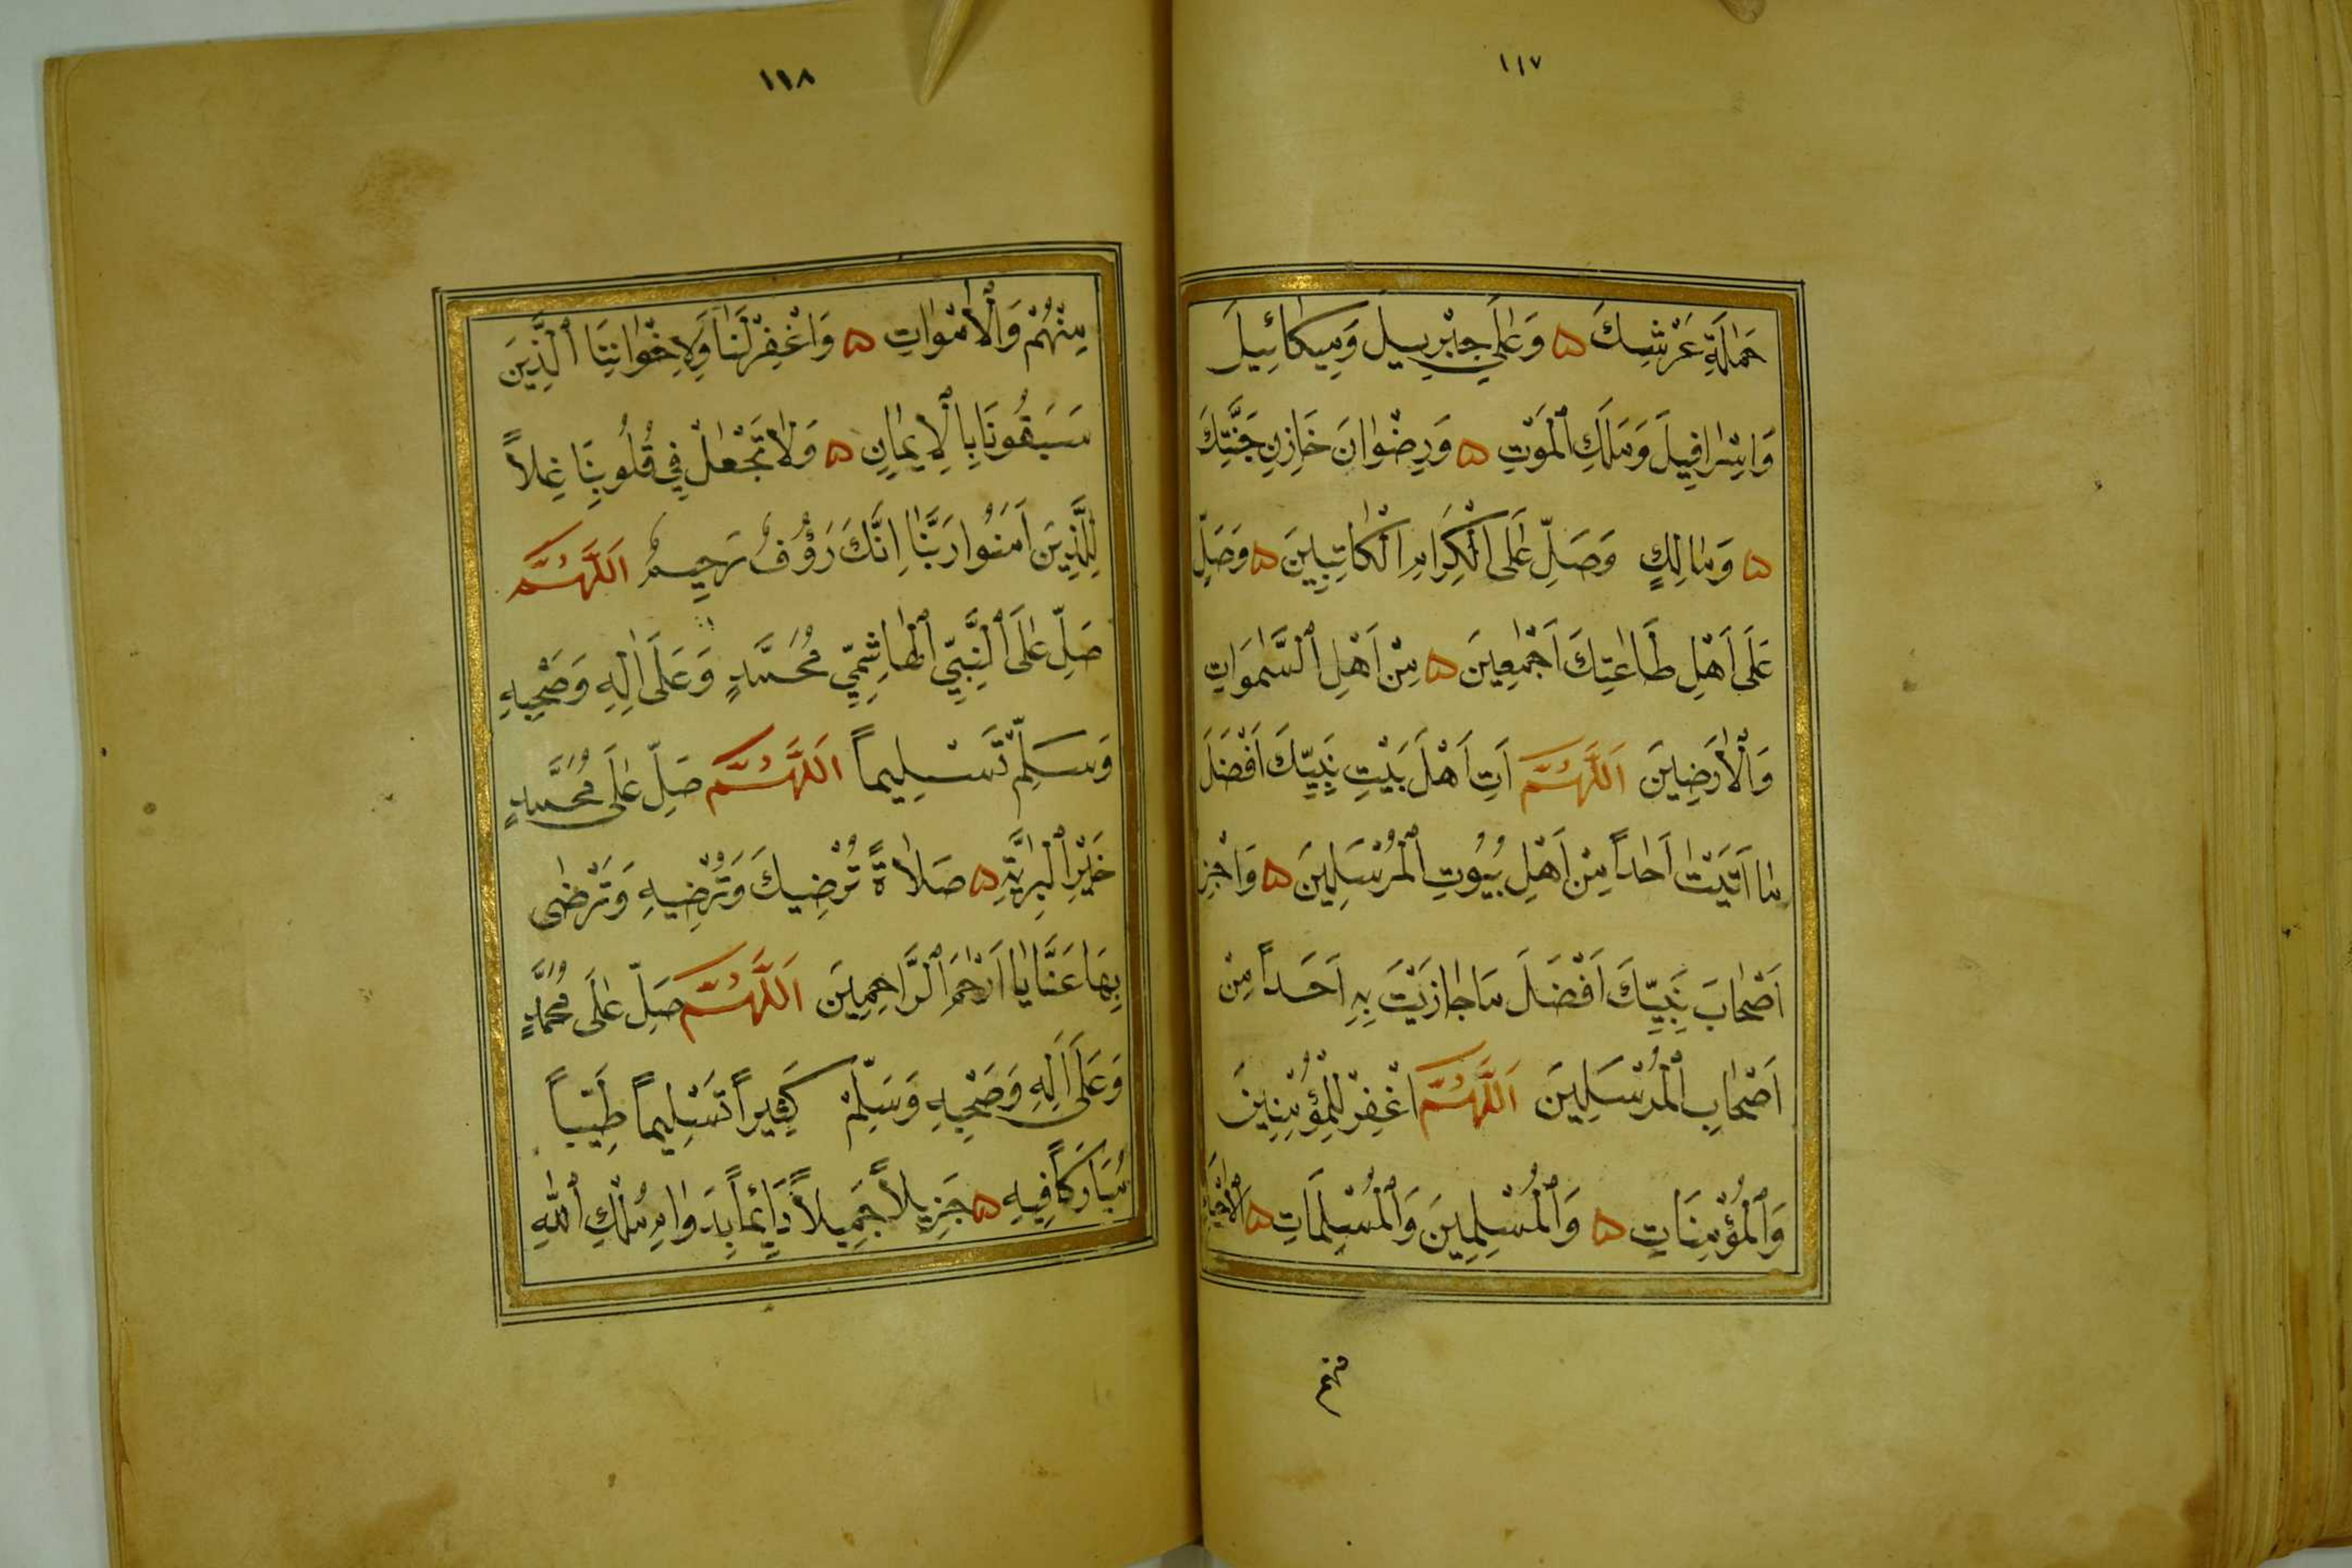 ١١٧
حَمَلَةِ عَرْشِكَ ۵ وَعَلَى جِبْرِيلَ وَمِيكَائِيلَ
وَاِسْرَافِيلَ وَمَلَكِ الْمَوْتِ ۵ وَرِضْوَانَ خَازِنِ جَنَّتِكَ
۵ وَمَالِكٍ وَصَلِّ عَلَى الْكِرَامِ الْكَاتِبِينَ ۵ وَصَلِّ
عَلَى اَهْلِ طَاعَتِكَ اَجْمَعِينَ ۵ مِنْ اَهْلِ السَّمٰوَاتِ
وَالْاَرَضِينَ اَللّٰهُمَّ اٰتِ اَهْلَ بَيْتِ نَبِيِّكَ اَفْضَلَ
مَا اٰتَيْتَ اَحَداً مِنْ اَهْلِ بُيُوتِ الْمُرْسَلِينَ ۵ وَاجْزِ
اَصْحَابَ نَبِيِّكَ اَفْضَلَ مَا جَازَيْتَ بِهِ اَحَداً مِنْ
اَصْحَابِ الْمُرْسَلِينَ اَللّٰهُمَّ اغْفِرْ لِلْمُؤْمِنِينَ
وَالْمُؤْمِنَاتِ ۵ وَالْمُسْلِمِينَ وَالْمُسْلِمَاتِ ۵ اَلْاَحْيَاءِ
منهم
١١٨
مِنْهُمْ وَالْاَمْوَاتِ ۵ وَاغْفِرْ لَنَا وَلِاِخْوَانِنَا الَّذِينَ
سَبَقُونَا بِالْاِيمَانِ ۵ وَلَا تَجْعَلْ فِي قُلُوبِنَا غِلاًّ
لِلَّذِينَ اٰمَنُوا رَبَّنَا اِنَّكَ رَؤُفٌ رَحِيمٌ اَللّٰهُمَّ
صَلِّ عَلَى النَّبِيِّ الْهَاشِمِيِّ مُحَمَّدٍ وَعَلَى اٰلِهِ وَصَحْبِهِ
وَسَلِّمْ تَسْلِيماً اَللّٰهُمَّ صَلِّ عَلَى مُحَمَّدٍ
خَيْرِ الْبَرِيَّةِ ۵ صَلَاةً تُرْضِيكَ وَتُرْضِيهِ وَتَرْضٰى
بِهَا عَنَّا يَا اَرْحَمَ الرَّاحِمِينَ اَللّٰهُمَّ صَلِّ عَلَى مُحَمَّدٍ
وَعَلَى اٰلِهِ وَصَحْبِهِ وَسَلِّمْ كَثِيراً تَسْلِيماً طَيِّباً
مُبَارَكاً فِيهِ ۵ جَزِيلاً جَمِيلاً دَائِماً بِدَوَامِ مُلْكِ اللّٰهِ